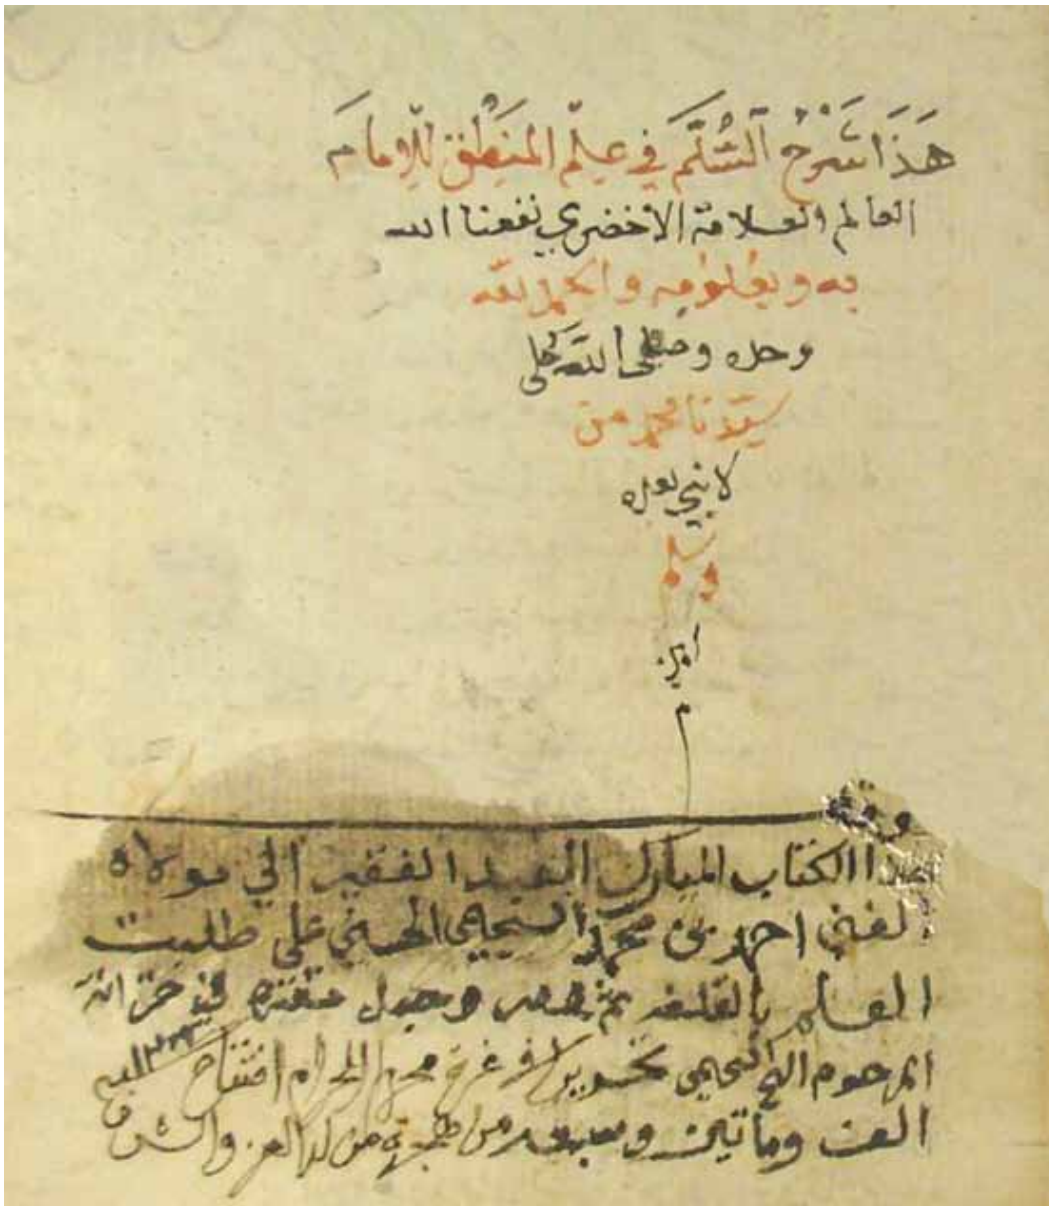 هَذَا شَرْحُ السُّلَّم في عِلْم المنطق للإمام
العالم العلامة الاخضري نفعنا الله
به وبعلومه والحمد لله
وحده وصلى الله على
سيدنا محمد من
لا نبي بعده
وسلم
امين
م
وقف
هذا الكتاب المبارك العبد الفقير الي مولاه
الغني احمد بن محمد السحيمي الحسني علي طلبت
العلم بالقلعه وجعل مقره في خزانة
المرحوم السحيمي تحريرا في غرة محرم الحرام افتتاح
الف ومأتين وسبعه من هجرة من له العز والشرف